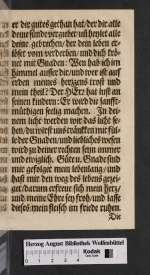 er dir gutes gethan hat/ der dir alle
deine sünde vergibet/ uñ heylet alle
deine gebrechen/ der dein leben er-
löset vom verderben/ uñ dich krö-
net mit Gnaden: Wen hab ich im
Himmel ausser dir/ und wer ist auf
erden meines hertzens trost und
mein theil? Der HErr hat lust an
seinen kindern: Er wird die sanfft-
müthigen selig machen. In dei-
nem licht werden wir das licht se-
hen/ du wirst uns träncken mit fül-
le der Gnaden/ und liebliches wesen
wird zu deiner rechten seyn immer
und ewiglich. Güte u. Gnade sind
mir gefolget mein lebenlang/ und
hast mir den weg des lebens gezei-
get/ darum erfreue sich mein hertz/
und meine Ehre sey froh/ und lasse
dieses mein fleisch im friede ruhen.
Die
Herzog August Bibliothek Wolfenbüttel
Kodak